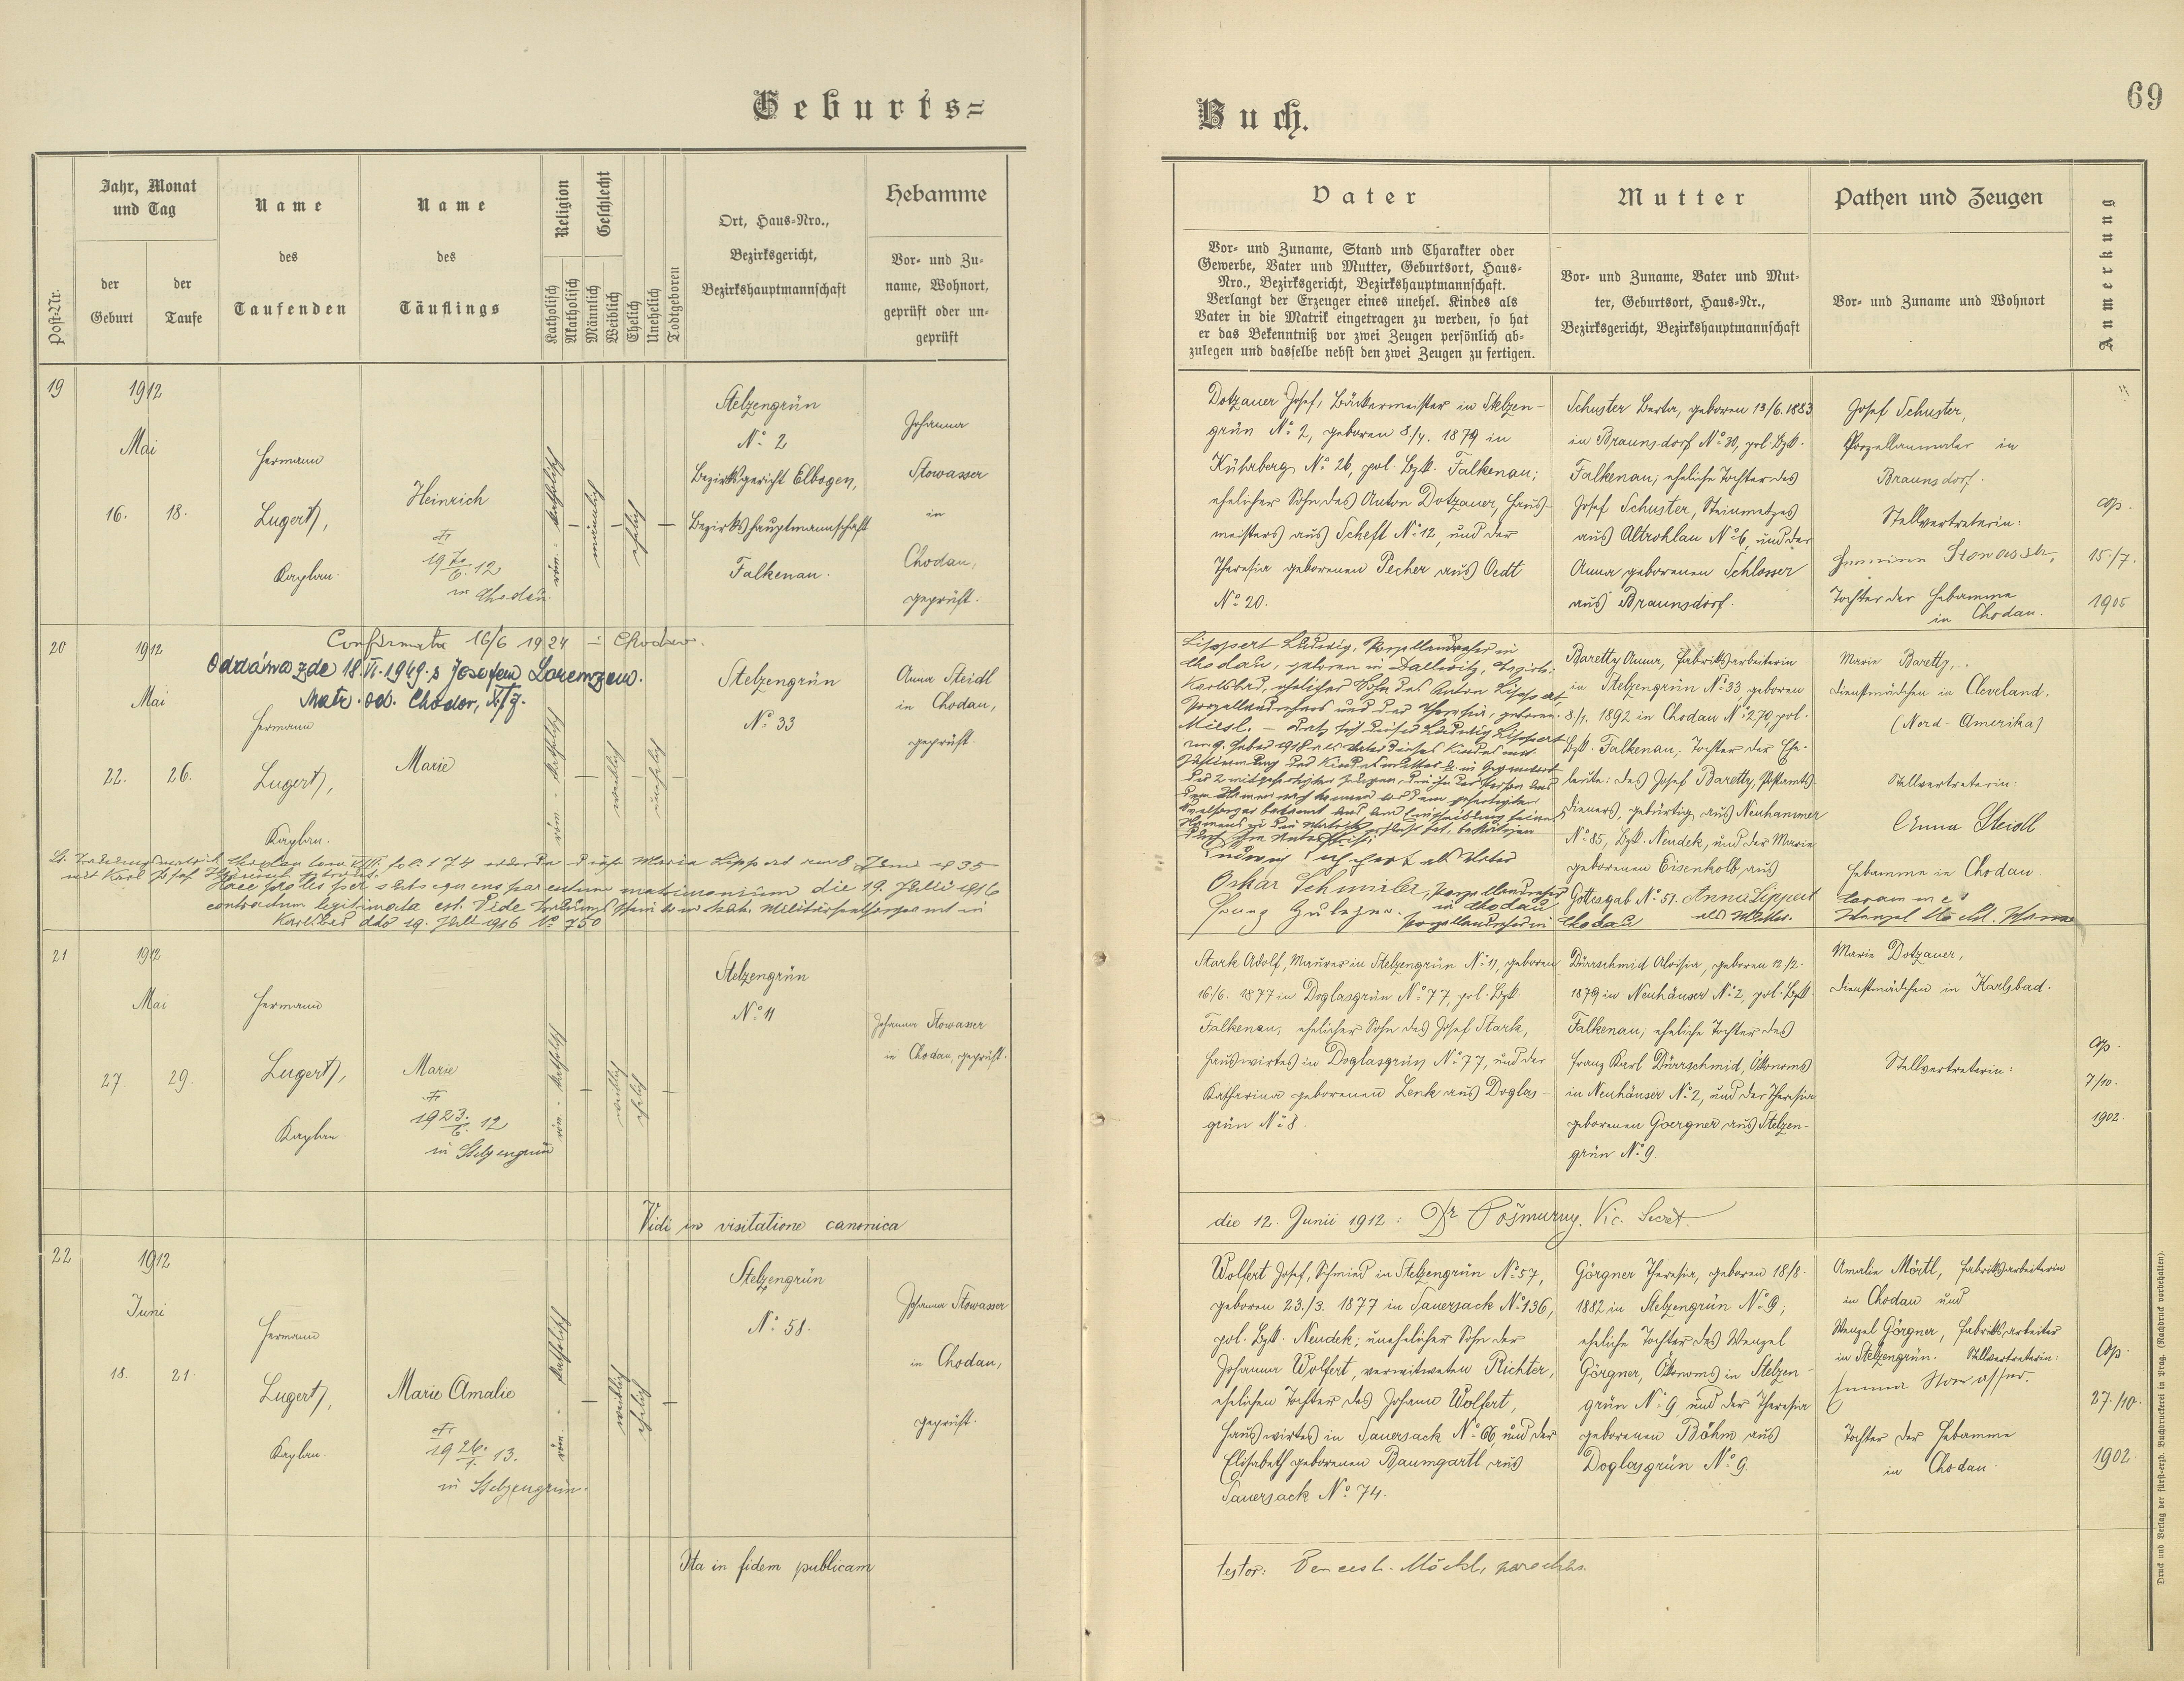 Geburts=
Buch.
69
Post-Nr.
Jahr, Monat
und Tag
der
Geburt
der
Taufe
Name
des
Taufenden
Name
des
Täuflings
Religion
Katholisch
Akatholisch
Geschlecht
Männlich
Weiblich
Ehelich
Unehelich
Todtgeboren
Ort, Haus-Nro.,
Bezirksgericht,
Bezirkshauptmannschaft
Hebamme
Vor- und Zu-
name, Wohnort,
geprüft oder un-
geprüft
Vater
Vor- und Zuname, Stand und Charakter oder
Gewerbe, Vater und Mutter, Geburtsort, Haus-
Nro., Bezirksgericht, Bezirkshauptmannschaft.
Verlangt der Erzeuger eines unehel. Kindes als
Vater in die Matrik eingetragen zu werden, so hat
er das Bekenntniß vor zwei Zeugen persönlich ab-
zulegen und dasselbe nebst den zwei Zeugen zu fertigen.
Mutter
Vor- und Zuname, Vater und Mut-
ter, Geburtsort, Haus-Nr.,
Bezirksgericht, Bezirkshauptmannschaft
Pathen und Zeugen
Vor- und Zuname und Wohnort
Anmerkung
19
1912
Mai
16. 18.
Hermann
Lugert,
Kaplan.
Heinrich
19 12
in Chodau
röm. - katholisch
männlich
ehelich
Stelzengrün
No. 2
Bezirksgericht Elbogen,
Bezirkshauptmannschaft
Falkenau.
Johanna
Stowasser
in
Chodau,
geprüft.
Dotzauer Josef, Bäckermeister in Stelzen-
grün No. 2, geboren 8./4. 1879 in
Kührberg No. 26, pol. Bzk. Falkenau;
ehelicher Sohn des Anton Dotzauer, Haus-
meisters aus Scheft No. 12, und der
Theresia geborenen Pecher aus Oedt
No. 20.
Schuster Berta, geboren 13/6. 1883
in Braunsdorf No. 30, pol. Bzk.
Falkenau; eheliche Tochter des
Josef Schuster, Steinmetzes
aus Altrohlau No. 6, und der
Anna geborenen Schlosser
aus Braunsdorf.
Josef Schuster,
Porzellanmaler in
Braunsdorf.
Stellvertreterin:
Hermine Stowasser,
Tochter der Hebamme
in Chodau.
cop.
15./7.
1905
20
1912
Mai
22. 26.
Confirmata 16/6 1924 in Chodau.
Oddána zde 18.VI.1949 s Josefem Lorenzem.
Matr. od. Chodov,
Hermann
Lugert,
Kaplan.
Marie
röm. - katholisch
weiblich
unehelich
Stelzengrün
No. 33
Anna Steidl
in Chodau,
geprüft.
Lt. Trauungsmatrik Chodau tom. VIII. fol. 174 wurde diese Maria Lippert am 8. Juni 1935
mit Karl Josef getraut.
Haec proles per subsequens parentum matrimonium die 19. Juli 1916
contractum legitimata est. Vide Trauungsschein
Karlsbad dto 19. Juli 1916 No. 750
Lippert Ludwig, Porzellandreher in
Chodau, geboren in Dallwitz, Bezirk
Karlsbad, ehelicher Sohn des Anton Lippert,
Porzellandrehers und der Theresia, geboren.
Oskar Schmieler, Porzellandreher
in Chodau
Porzellandreher in Chodau
Baretty Anna, Fabriksarbeiterin
in Stelzengrün No. 33, geboren
8/1. 1892 in Chodau No. 270, pol.
Bzk. Falkenau; Tochter der Ehe-
leute: des Josef Baretty, Postamts-
dieners, gebürtig aus Neuhammer
No. 85, Bzk. Neudek, und der Marie
geborenen Eisenkolb aus
Gottesgab No. 51. Anna Lippert
als Mutter.
Marie Baretty,
Dienstmädchen in Cleveland.
(Nord-Amerika)
Stellvertreterin:
Anna Steidl
Hebamme in Chodau.
Coram me:
21
1912
Mai
27. 29.
Hermann
Lugert,
Kaplan.
Marie
1923. 12
in Stelzengrün
röm. - katholisch
weiblich
ehelich
Stelzengrün
No. 11
Johanna Stowasser
in Chodau, geprüft.
Stark Adolf, Maurer in Stelzengrün No. 11, geboren
16/6. 1877 in Doglasgrün No. 77, pol. Bzk.
Falkenau; ehelicher Sohn des Josef Stark,
Hauswirtes in Doglasgrün No. 77, und der
Katharina geborenen Lenk aus Doglas-
grün No. 8.
Dürrschmid Aloisia, geboren 12/2.
1879 in Neuhäuser No. 2, pol. Bzk.
Falkenau; eheliche Tochter des
Franz Karl Dürrschmid, Ökonoms
in Neuhäuser No. 2, und der Theresia
geborenen Goergner aus Stelzen-
grün No. 9.
Marie Dotzauer,
Dienstmädchen in Karlsbad.
Stellvertreterin:
cop.
7/10.
1902.
Vidi in visitatione canonica
die 12. Junii 1912: Dr Pošmurny. Vic. Secret.
22
1912
Juni
18. 21.
Hermann
Lugert,
Kaplan.
Marie Amalie
1926. 13.
in Stelzengrün.
röm. - katholisch
weiblich
ehelich
Stelzengrün
No. 58.
Johanna Stowasser
in Chodau,
geprüft.
Wolfert Josef, Schmied in Stelzengrün No. 57,
geboren 23./3. 1877 in Sauersack No. 136,
pol. Bzk. Neudek; unehelicher Sohn der
Johanna Wolfert, verwitweten Richter,
ehelichen Tochter des Johann Wolfert,
Hauswirtes in Sauersack No. 66, und der
Elisabeth geborenen Baumgartl aus
Sauersack No. 74.
Görgner Theresia, geboren 18/8.
1882 in Stelzengrün No. 9;
eheliche Tochter des Wenzel
Görgner, Ökonoms in Stelzen-
grün No. 9 und der Theresia
geborenen Böhm aus
Doglasgrün No. 9.
Amalie Mörtl, Fabriksarbeiterin
in Chodau und
Wenzel Görgner, Fabriksarbeiter
in Stelzengrün. Stellvertreterin:
Emma Stowasser.
Tochter der Hebamme
in Chodau.
Cop.
27./10.
1902.
Ita in fidem publicam
testor: Vencesl. Möckl, parochus.
Druck und Verlag der fürst-erzb. Buchdruckerei in Prag. (Nachdruck vorbehalten).